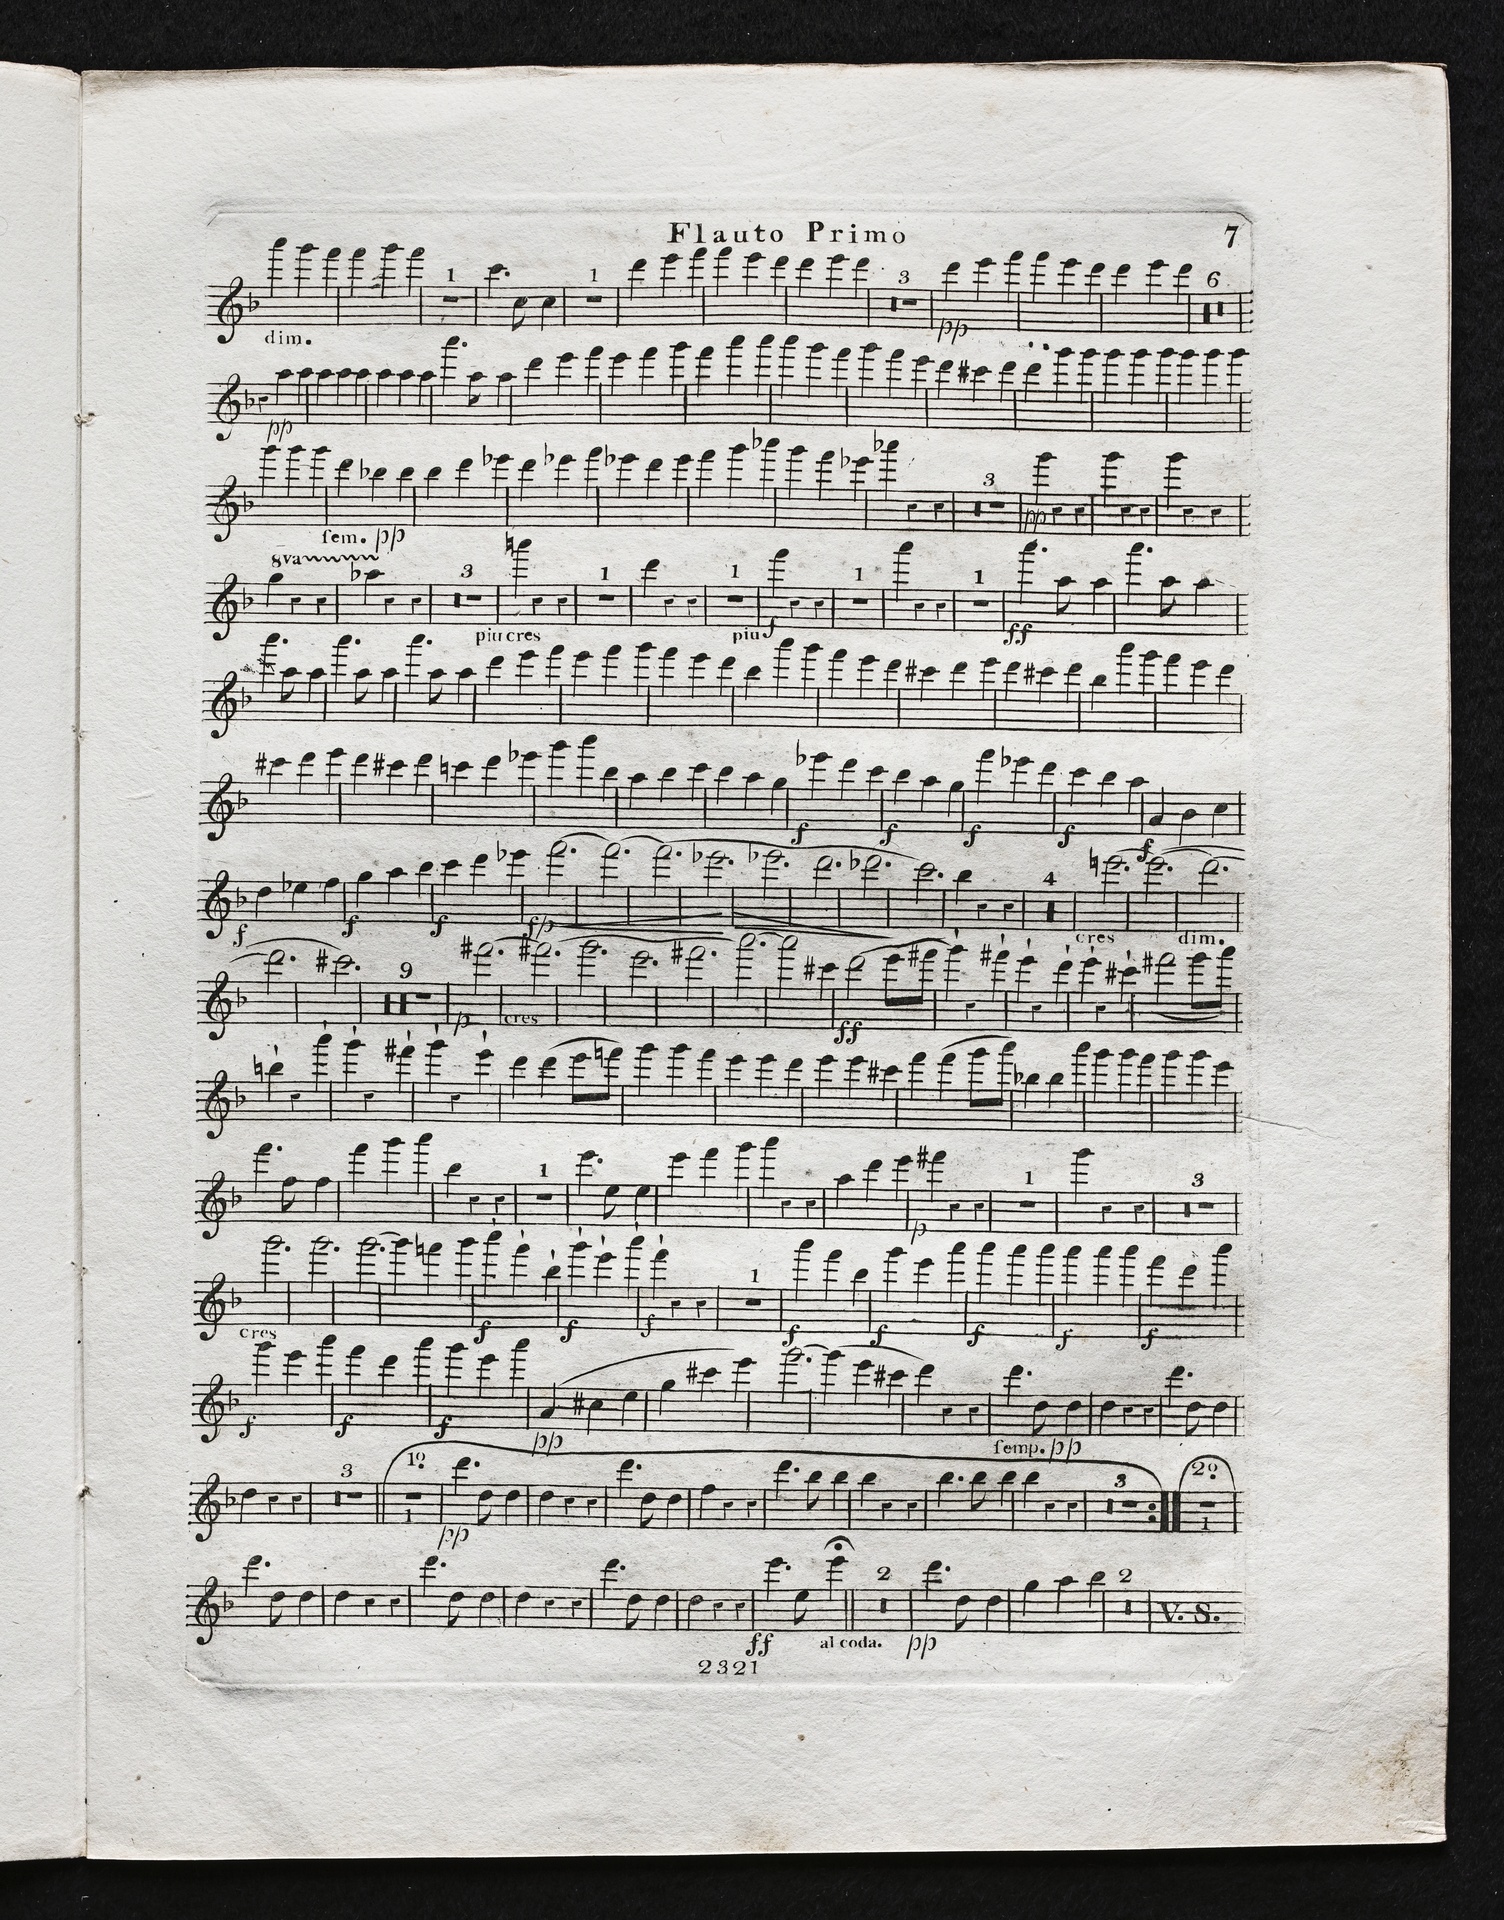 Flauto Primo 7
1 1 3 6
dim. pp
pp
3
sem. pp pp
8va
3 1 1 1 1
piu cres piu f ff
f f f f f
4
f f f fp cres dim.
9
p cres ff
1 1 3
p
1
cres f f f f f f f f
f f f pp semp. pp
3 1º 3 2º
1 1
pp
2 2 V. S.
ff al coda. pp
2321